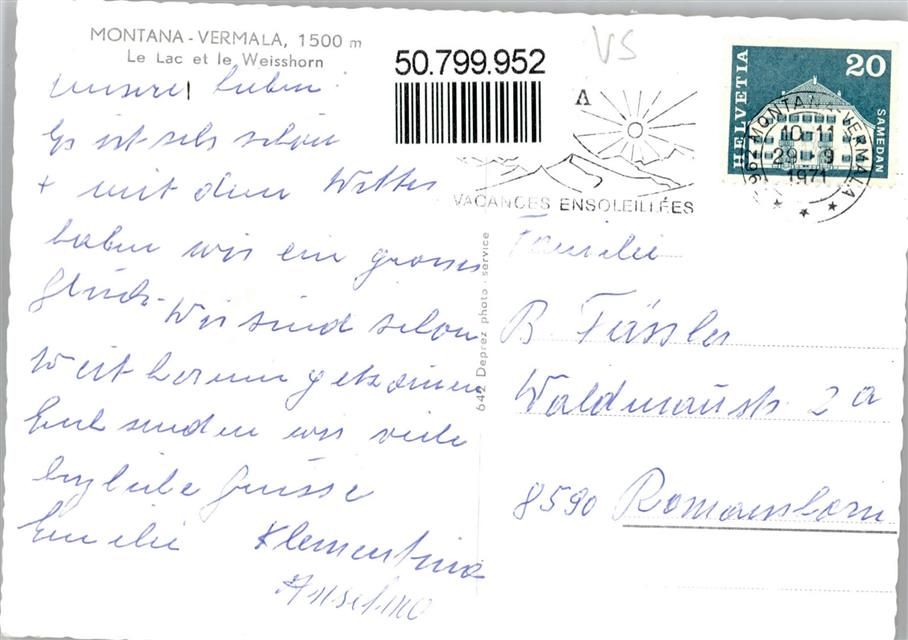 MONTANA - VERMALA, 1500 m
Le Lac et le Weisshorn
50.799.952
VS
A
VACANCES ENSOLEILLÉES
HELVETIA
20
SAMEDAN
3962 MONTANA-VERMALA
10-11
29 - 9
1971
642 Deprez photo - service
Unsere Lieben!
Es ist sehr schön
+ mit dem Wetter
haben wir ein grosses
Glück. Wir sind schon
weit herum gekommen
Euch senden wir viele
herzliche Grüsse
Emilie Klementina
Anselmo
Familie
B. Fässler
Waldmaustr. 2a
8590 Romanshorn